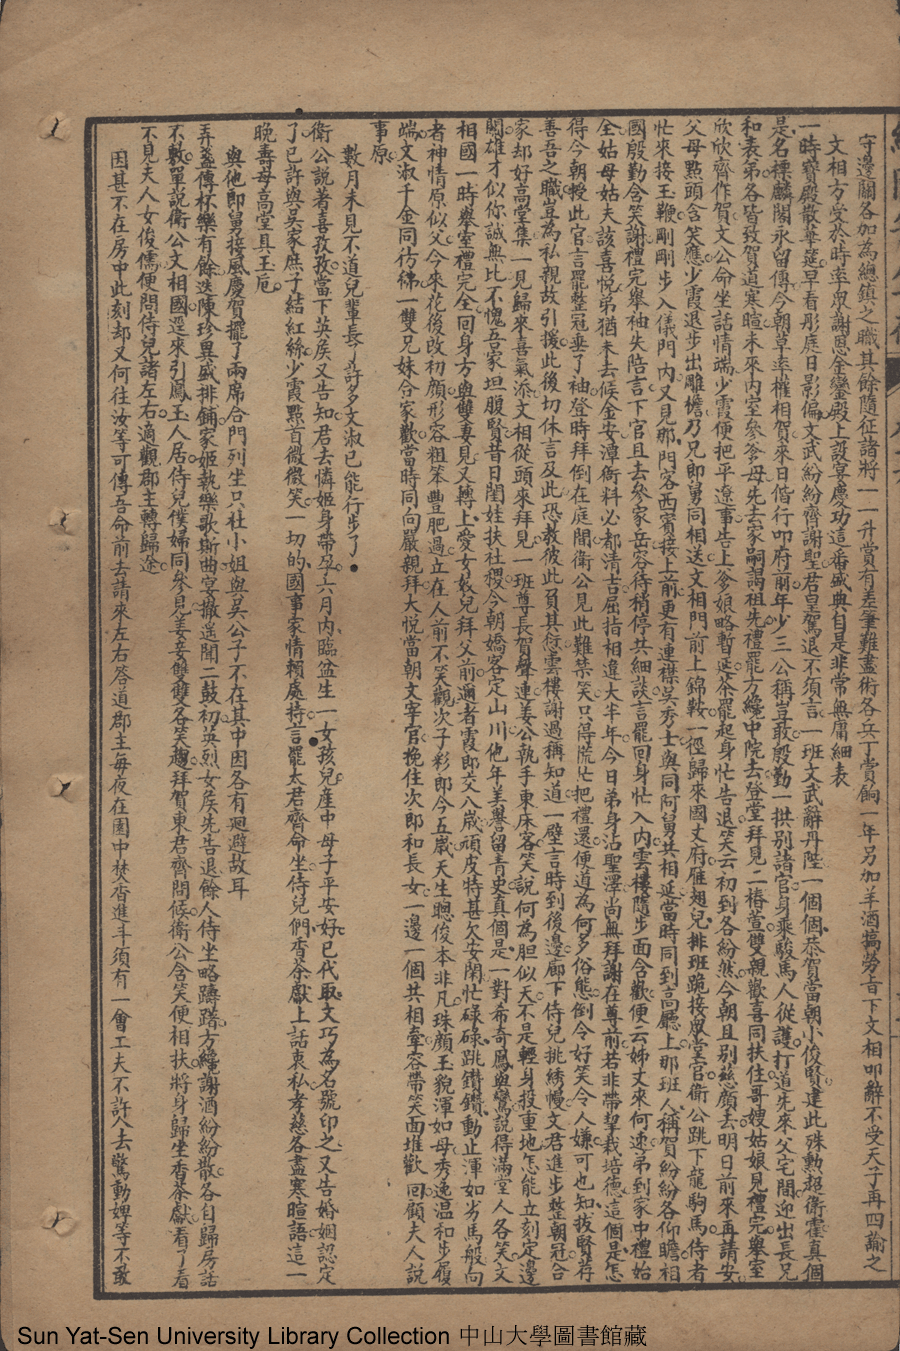 守邊關各加為總鎮之職其餘隨征諸將一一升賞有差筆難盡術各兵丁賞餉一年另加羊酒犒勞旨下文相叩辭不受天子再四諭之
文相方受於時率眾謝恩金鑾殿上設宴慶功這番盛典自是非常無庸細表
一時寶殿散華筵早看彤庭日影偏文武紛紛齊謝聖君皇駕退不須言一班文武辭丹陛一個個恭賀當朝小俊賢建此殊勳超衛霍真個
是名標麟閣永留傳今朝草率權相賀來日偕行叩府前年少三公稱豈敢殷勤一拱別諸官身乘駿馬人從護打道先來父宅間迎出長兄
和表弟各皆致賀道寒暄未來內室參爹母先去家嗣謁祖先禮罷方纔中院去登堂拜見二椿萱雙親歡喜同扶住哥嫂姑娘見禮完舉室
欣欣齊作賀文公命坐話情端少霞便把平遼事告上爹娘略暫延茶罷起身忙告退笑云初到各紛然今朝且別慈顏去明日前來再請安
父母點頭含笑應少霞退步出雕檐乃兄即舅同相送文相門前上錦鞍一徑歸來國丈府雁翅兒排班跪接眾堂官衛公跳下龍駒馬侍者
忙來接玉鞭剛剛步入儀門內又見那門客西賓接上前更有連襟吳秀士與同阿舅共相延當時同到高廳上那班人稱賀紛紛各仰瞻相
國殷勤含笑謝禮完舉袖失陪言下官且去參家岳容待稍停共細談言罷回身忙入內雲樓隨步面含歡便云姊丈來何速弟到家中禮始
全姑母姑夫該喜悅弟猶未去候金安漳衛料必都清吉屈指相違大半年今日弟身沾聖澤尚無拜謝在尊前若非帶挈栽培德這個是怎
得今朝授此官言罷整冠垂了袖登時拜倒在庭閒衛公見此難禁笑只得慌忙把禮還便道為何多俗態倒令好笑令人嫌可也知拔賢荐
善吾之職豈為私親故引援此後切休言及此恐教彼此負其愆雲樓謝過稱知道一壁言時到後邊廊下侍兒挑綉幔文君進步整朝冠合
家却好高堂集一見歸來喜氣添文相從頭來拜見一班尊長賀聲連姜公執手東床客笑說何為胆似天不是輕身投重地怎能立刻定邊
關雄才似你誠無比不愧吾家坦腹賢昔日閨娃扶社稷今朝嬌客定山川他年美譽留青史真個是一對希奇鳳與鸞說得滿堂人各笑文
相國一時舉室禮完全回身方與雙妻見又轉上愛女嬌兒拜父前邇者霞郎交八歲頑皮特甚欠安閑忙碌碌跳鑽鑽動止渾如劣馬般向
者神情原似父今來花後改初顏形容粗笨豐肥過立在人前不笑觀次子彩郎今五歲天生聰俊本非凡珠顏玉貌渾如母秀逸温和步履
端文淑千金同彷彿一雙兄妹合家歡當時同向嚴親拜大悅當朝文宰官挽住次郎和長女一邊一個共相牽容帶笑面堆歡回顧夫人說
事原
數月未見不道兒輩長了許多文淑已能行步了
衛公說著喜孜孜當下英矦又告知君去憐姬身帶孕六月內臨盆生一女孩兒產中母子平安好已代取文巧為名號印之又告婚姻認定
了已許與吳家庶子結紅絲少霞點首微微笑一切的國事家情賴處持言罷太君齊命坐侍兒們香茶獻上話衷私孝慈各盡寒暄語這一
晚壽母高堂具玉卮
與他即舅接風慶賀擺了兩席合門列坐只杜小姐與吳公子不在其中因各有迴避故耳
弄盞傳杯樂有餘迭陳珍異盛排鋪家姬執樂歌斯曲宴撤遙聞二鼓初英烈女矦先告退餘人侍坐略躊躇方纔謝酒紛紛散各自歸房話
不數單說衛公文相國逕來引鳳玉人居侍兒僕婦同參見姜妾雙雙各笑趨拜賀東君齊問候衛公含笑便相扶將身歸坐香茶獻看了看
不見夫人女俊儒便問侍兒諸左右適觀郡主轉歸途
因甚不在房中此刻却又何往汝等可傳吾命前去請來左右答道郡主每夜在園中焚香進斗須有一會工夫不許人去驚動婢等不敢
Sun Yat-Sen University Library Collection 中山大學圖書館藏